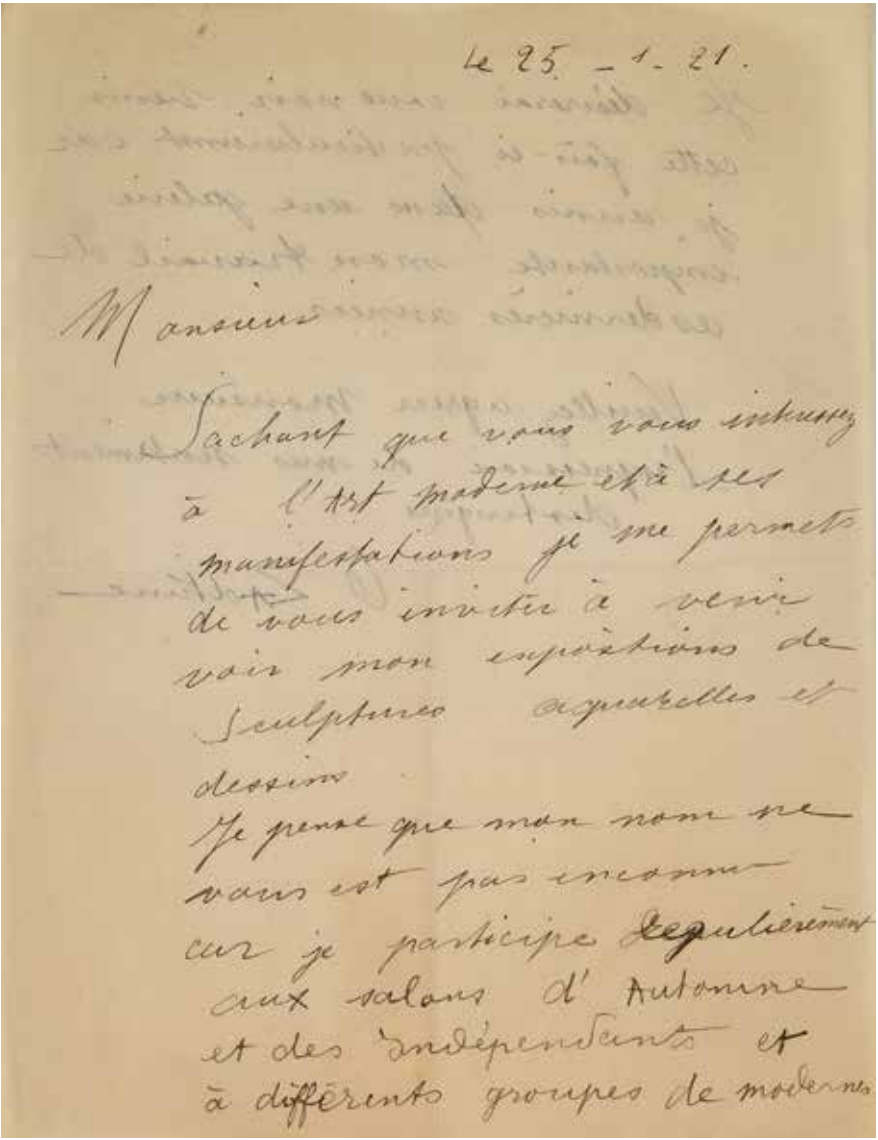 Le 25 - 1 - 21.
Monsieur
Sachant que vous vous intressez
à l'Art moderne et à ses
manifestations je me permets
de vous inviter à venir
voir mon expositions de
Sculptures aquarelles et
dessins.
Je pense que mon nom ne
vous est pas inconnu
car je participe regulièrement
aux salons d'Automne
et des Indépendants et
à différents groupes de modernes